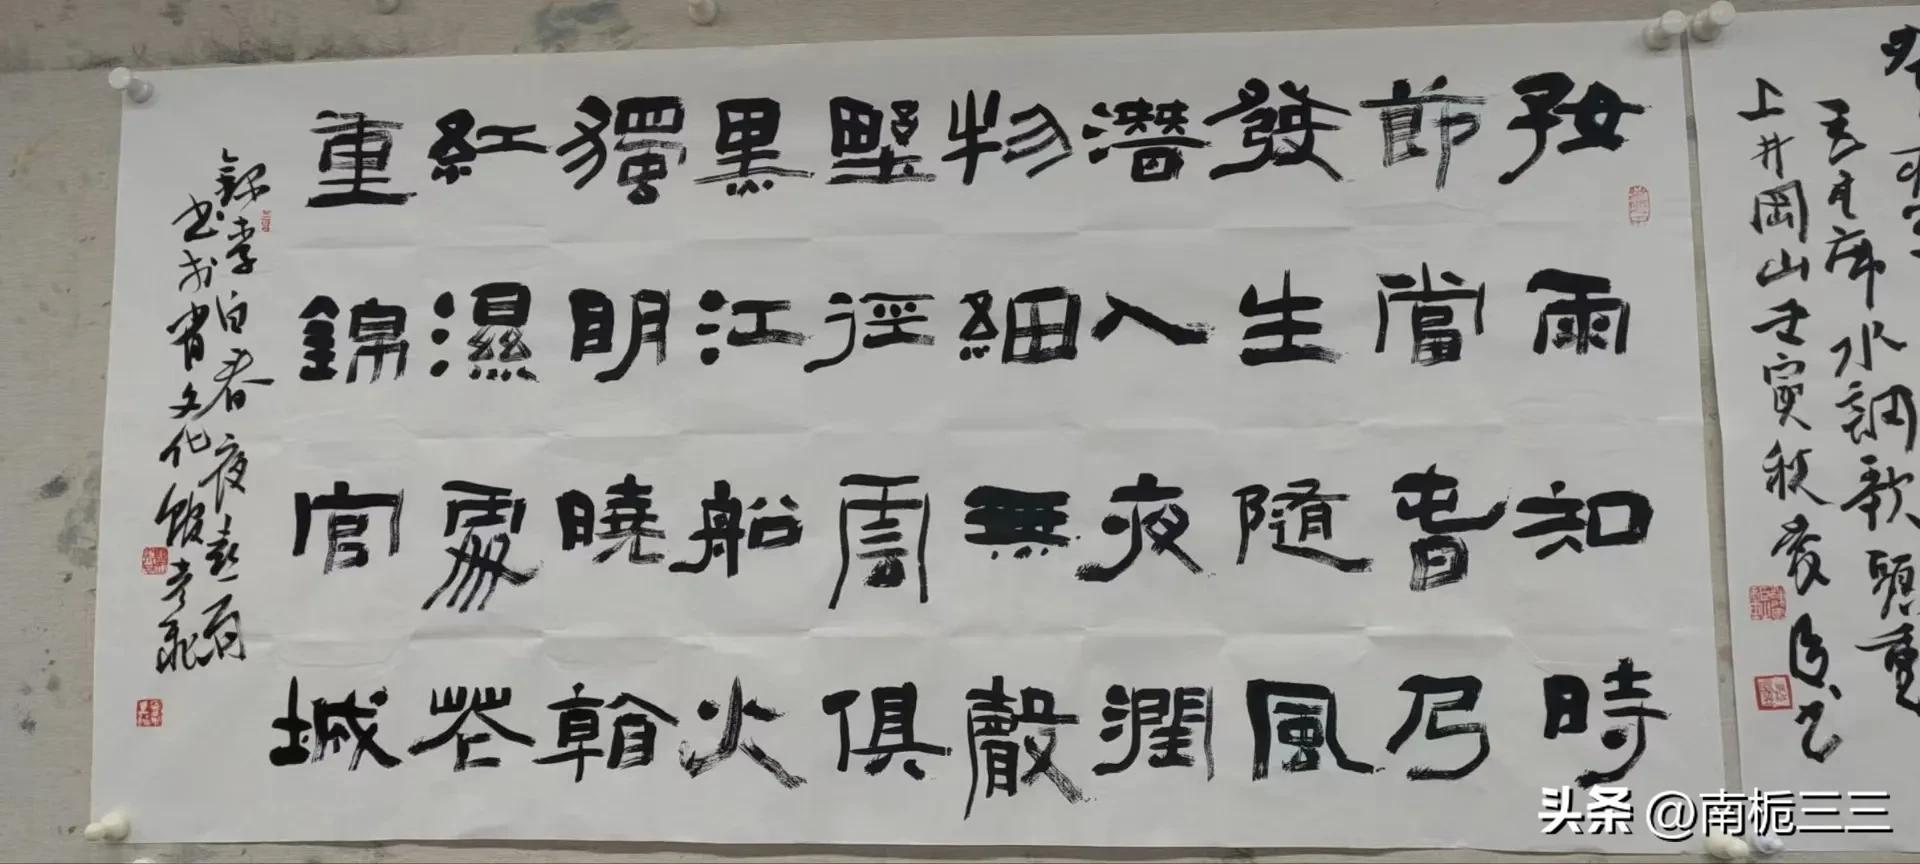 毛主席水調歌頭重
上井岡山壬寅秋
好雨知時
節當春乃
發生隨風
潛入夜潤
物細無聲
野徑雲俱
黑江船火
獨明曉看
紅濕處花
重錦官城
錄李白春夜喜雨
書於省文化館
头条 @南栀三三